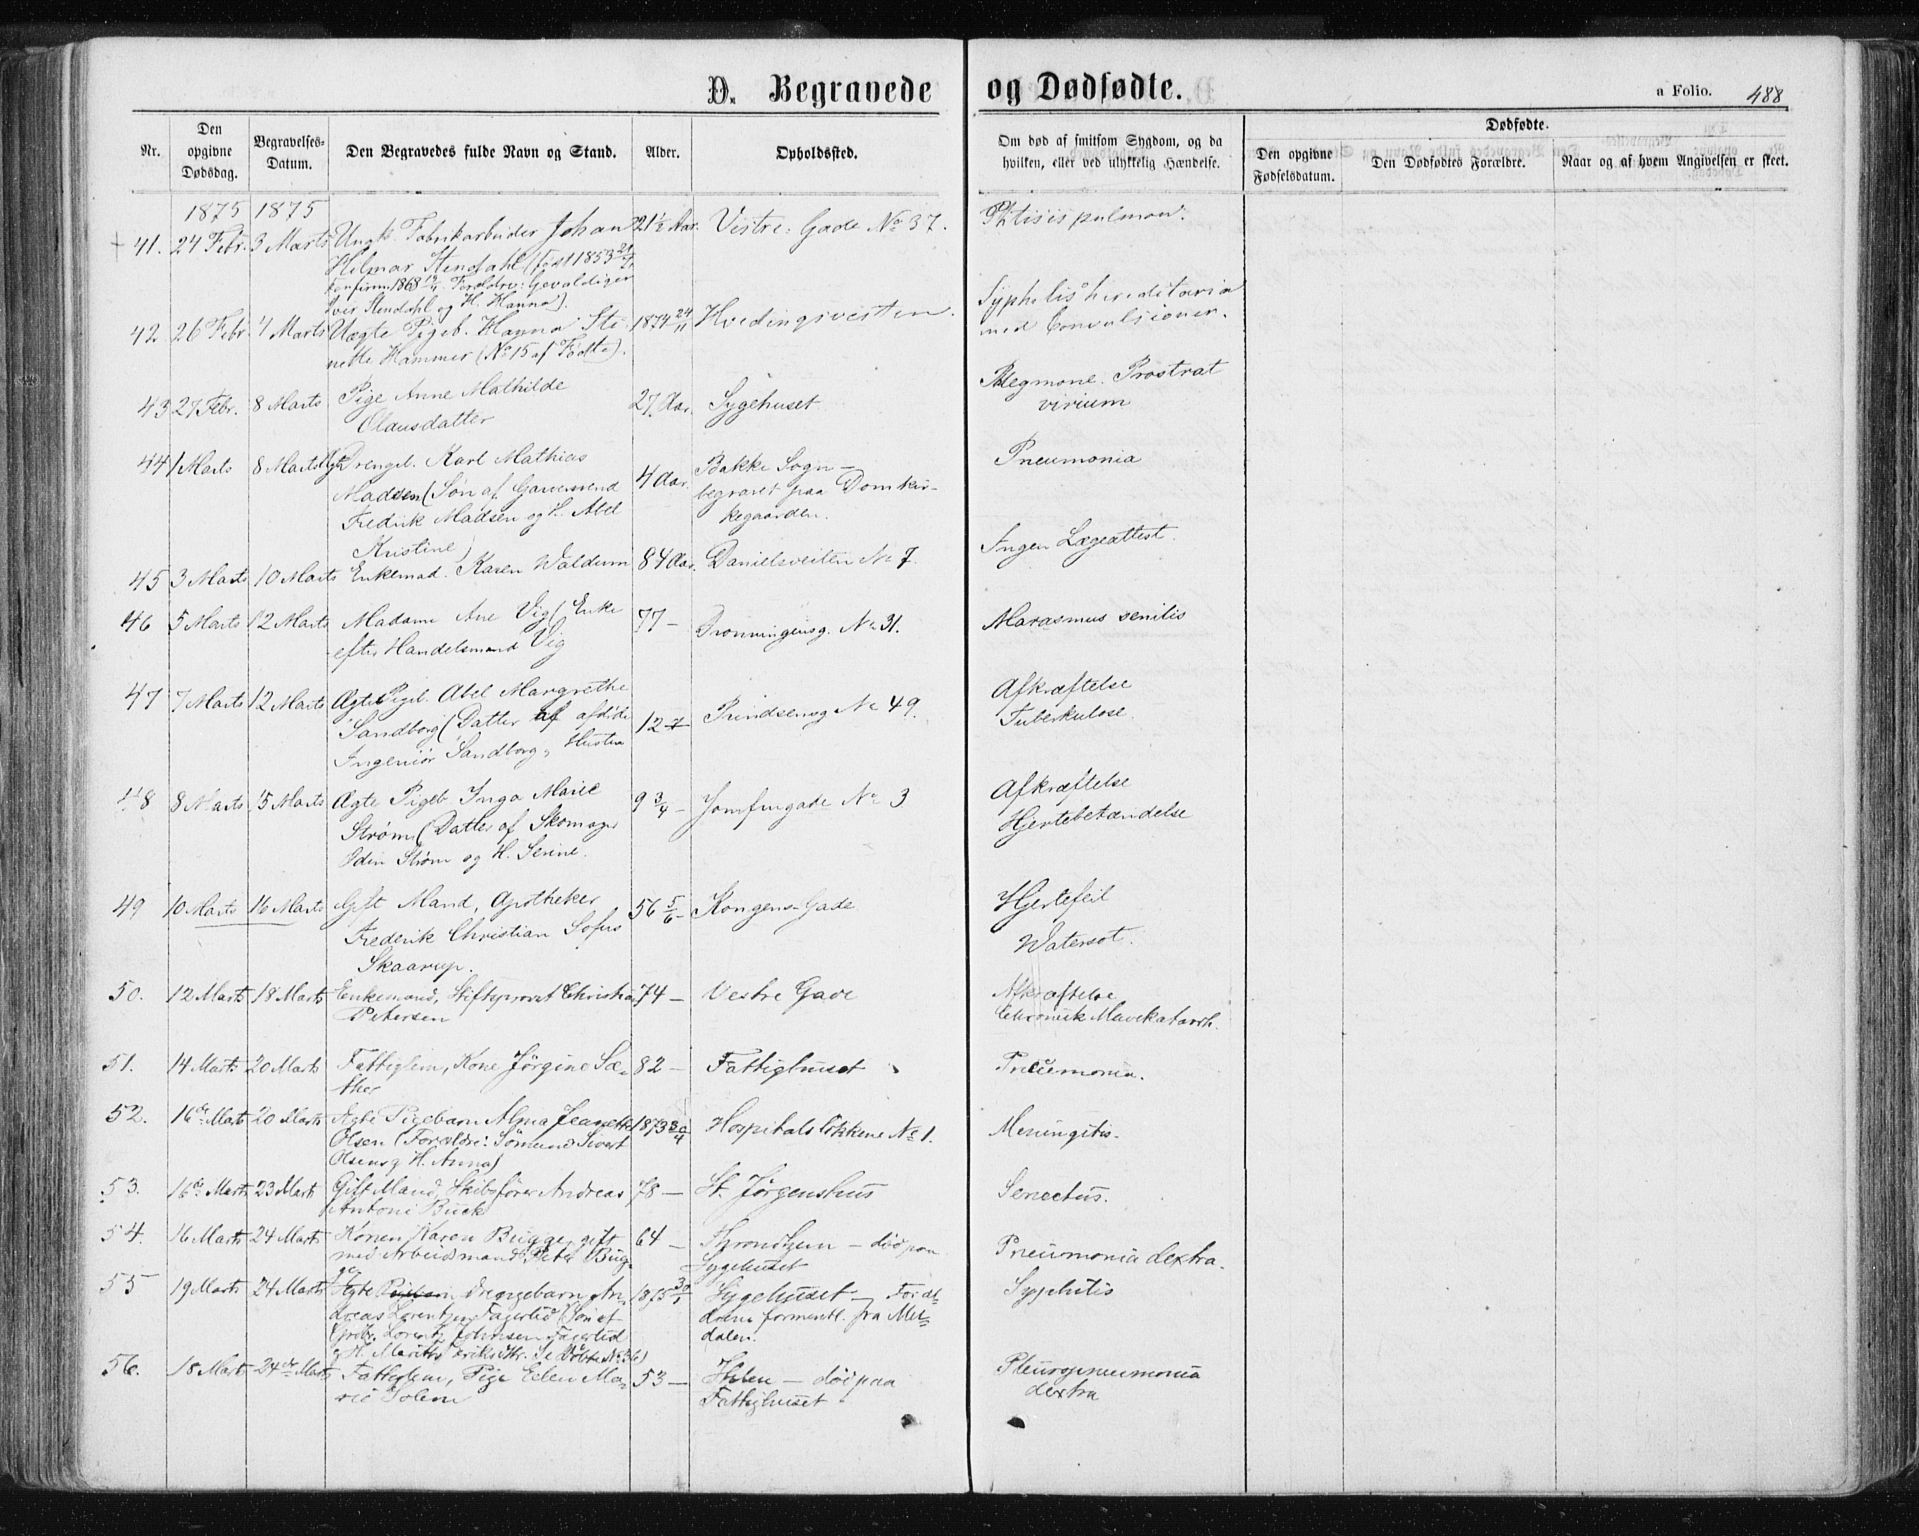 D. Begravede og Dødfødte.
a Folio. 488
Nr.
Den opgivne Dødsdag.
Begravelses-Datum.
Den Begravedes fulde Navn og Stand.
Alder.
Opholdssted.
Om død af smitsom Sygdom, og da hvilken, eller ved ulykkelig Hændelse.
Dødfødte.
Den opgivne Fødselsdatum.
Den Dødfødtes Forældre.
Naar og af hvem Angivelsen er skeet.
1875 1875
41. 24 Febr. 3 Marts Ungk. Fabrikarbeider Johan 21½ Aar. Vestre Gade No 37. Phtisis pulmon.
Hilmar Stendahl (født 1853
konfirm. 1868 Forældre: Gevaldiger
Iver Stendahl og H. Hanna).
42 26 Febr. 4 Marts Uægte Pigeb. Hanna Sti- 1874 24/11 Hvedingsveiten. Syphelis hereditaria
nette Hammer (No 15 af Fødte). med Convulsioner.
43 27 Febr. 8 Marts Pige Anne Mathilde 27 Aar. Sygehuset Phlegmone. Prostrat
Olausdatter virium
44 1 Marts 8 Marts Ægt. Drengeb. Karl Mathias 4 Aar. Bakke Sogn - Pneumonia
Madsen (Søn af Garversvend begravet paa Domkir-
Fredrik Madsen og H. Abel kegaarden.
Kristine)
45 3 Marts 10 Marts Enkemad. Karen Waldum 84 Aar. Danielsveiten No 7. Ingen Lægeattest.
46 5 Marts 12 Marts Madame Ane Vig (Enke 77 - Dronningensg. No 31. Marasmus senilis
efter Handelsmand Vig
47 7 Marts 12 Marts Ægte Pigeb. Abel Margrethe 12 - Prindsensg No 49. Afkræftelse
Sandborg (Datter af afdøde Tuberkulose.
Ingeniør Sandborg, Hustru
48 8 Marts 15 Marts Ægte Pigeb Inga Marie 9 3/4 - Jomfrugade No 3 Afkræftelse
Strøm (Datter af Skomager Hjertebetændelse
Odin Strøm og H. Serine.
49 10 Marts 16 Marts Gift Mand, Apotheker 56 5/6 - Kongens Gade Hjertefeil
Frederik Christian Sofus Watersot.
Skaarup.
50. 12 Marts 18 Marts Enkemand, Stiftsprovst Christian 74 - Vestre Gade Afkræftelse
Petersen Chronisk Mavekatarrh.
51. 14 Marts 20 Marts Fattiglem, Kone Jørgine Sæ- 82 - Fattighuset Pneumonia.
ther
52. 16de Marts 20 Marts Ægte Pigebarn Alma Jeanette 1873 30/4 Hospitalsløkkene No 1. Meningitis.
Olsen (Forældre: Sømand Sivert
Olsen og H. Anna)
53. 16de Marts 23 Marts Gift Mand, Skibsfører Andreas 78 - St. Jørgenshus Senectus.
Antoni Buck
54. 16 Marts 24 Marts Konen Karen Bugge, gift 64 - Throndhjem - død paa Pneumonia dextra.
med Arbeidsmand Peter Bug- Sygehuset
ge
55 19 Marts 24 Marts Ægte Pigebarn Drengebarn An- 1875 30/1 Sygehuset - Foræl- Syphilis
dreas Lorentzen Fagerlid (Søn af drene formentl. fra Mel-
Lorentz Johnsen Fagerlid dalen.
og H. Se Døbte No 36)
56. 18 Marts 24de Marts Fattiglem, Pige Ellen Ma- 53 - død paa Pleuropneumonia
rie Solem Fattighuset dextra